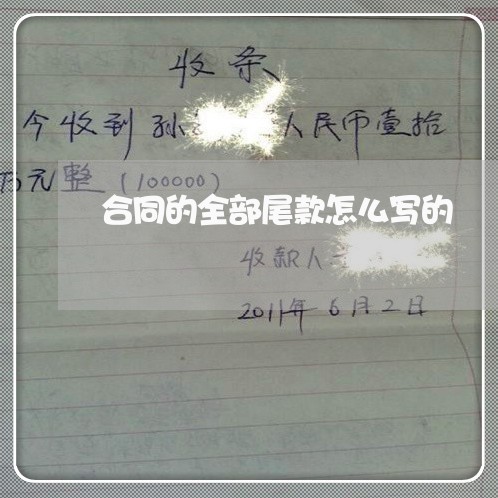 收条
今收到孙 人民币壹拾
万元整(100000)
合同的全部尾款怎么写的
收款人
2011年6月2日